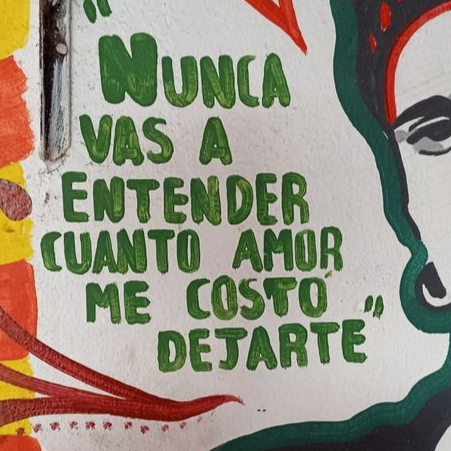 "NUNCA
VAS A
ENTENDER
CUANTO AMOR
ME COSTO
DEJARTE"